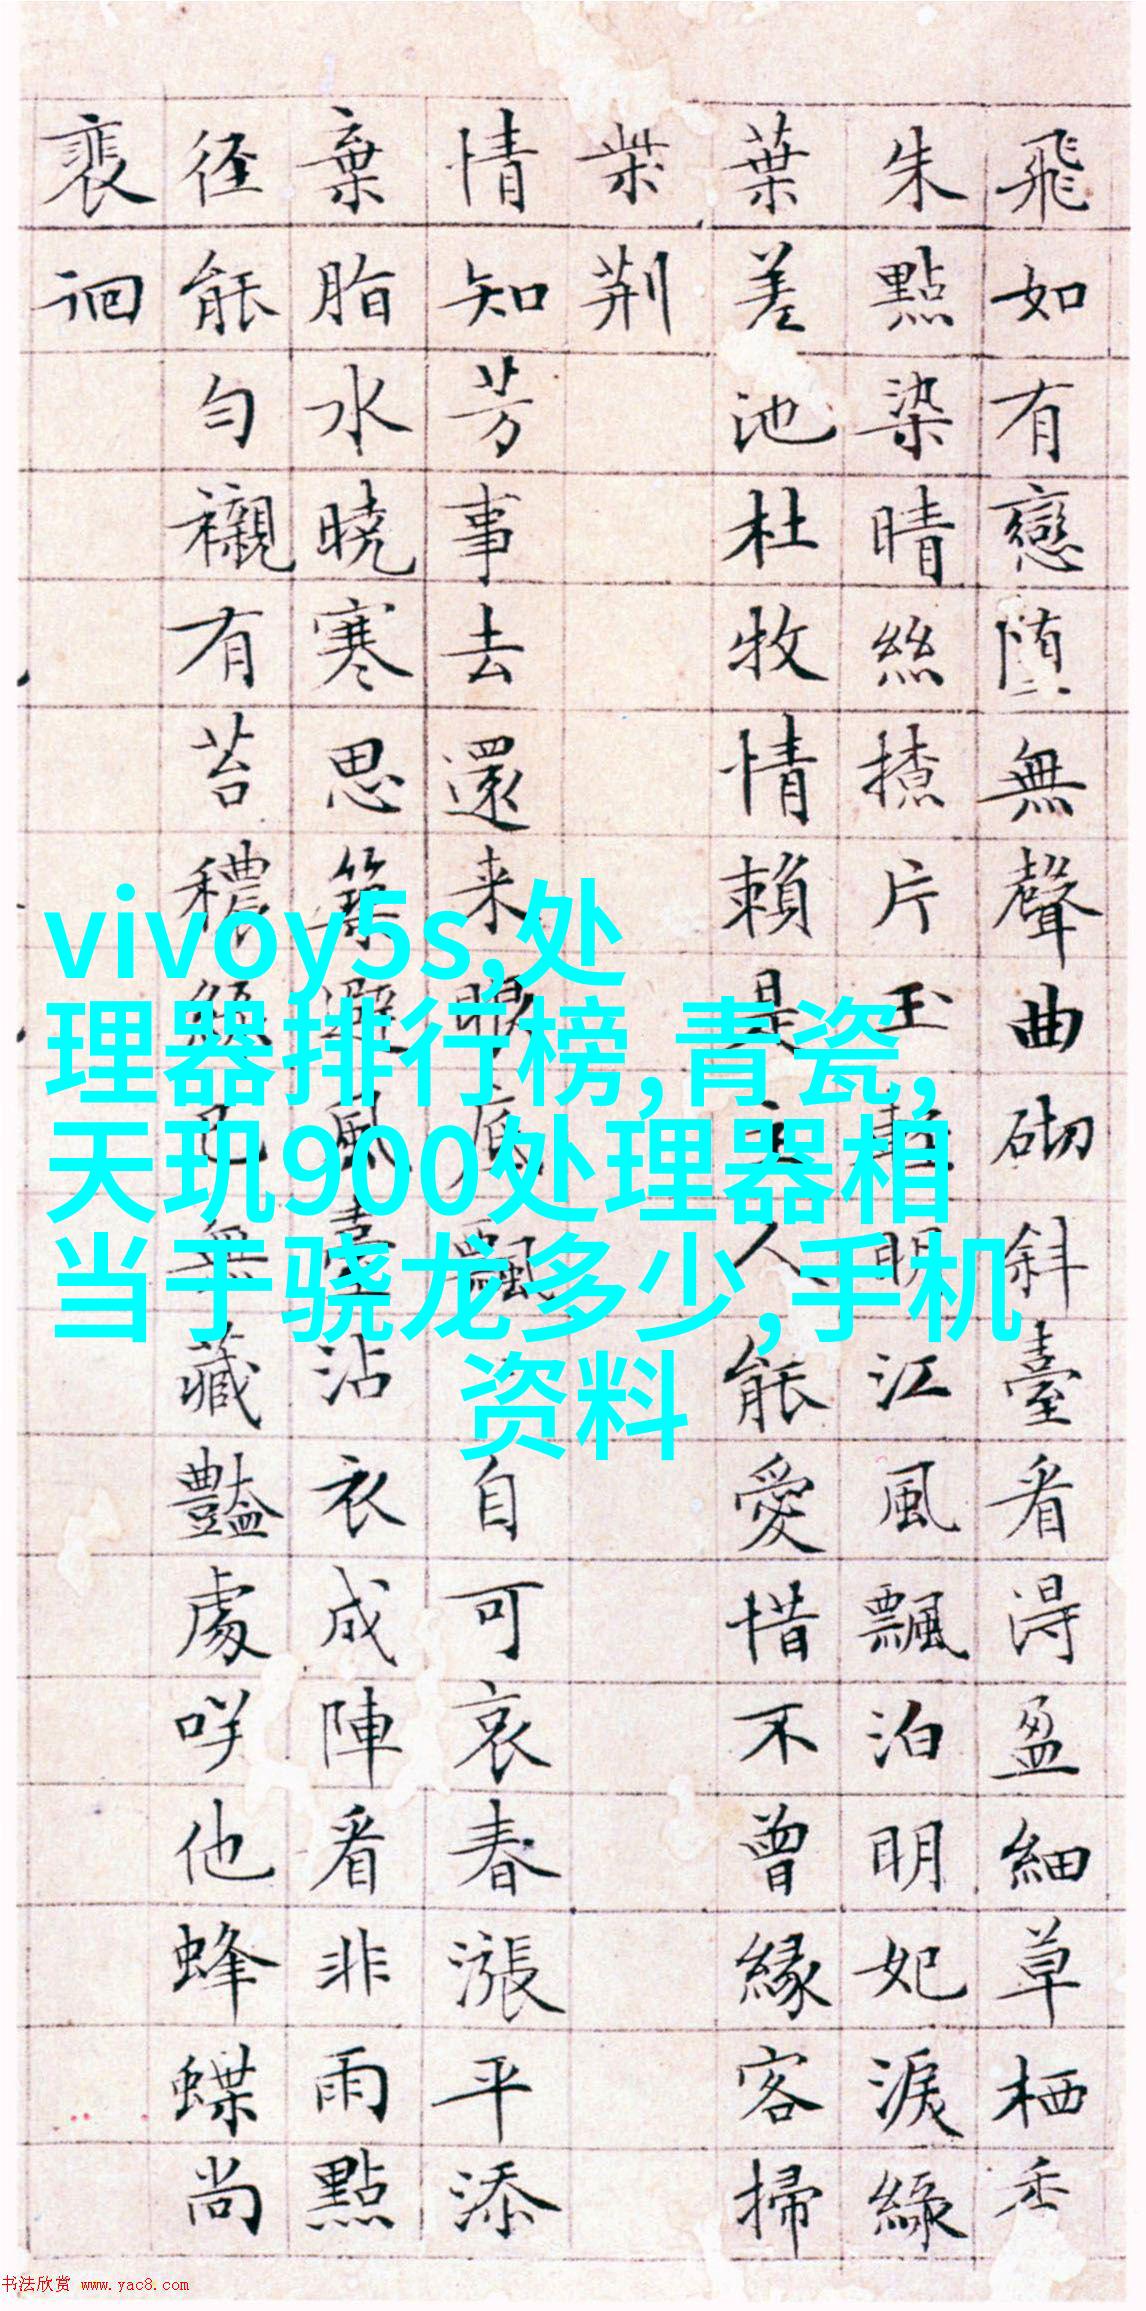 飛如有戀堕無聲曲砌斜臺看淂盈細草栖香
朱點染晴絲撩片玉明江風飄泊明妃淚緑
葉差池杜牧情賴是主人能愛惜不曾緣客掃
柴荆
情知芳事去還来眼底飄自可哀春漲平添
棄脂水曉寒思築避風臺沾衣成陣看非雨點
径能勻襯有苔穠絕已無藏豔處咲他蜂蝶尚
裵徊
vivoy5s,处
理器排行榜,青瓷,
天玑900处理器相
当于骁龙多少,手机
资料
书法欣赏 www.yac8.com